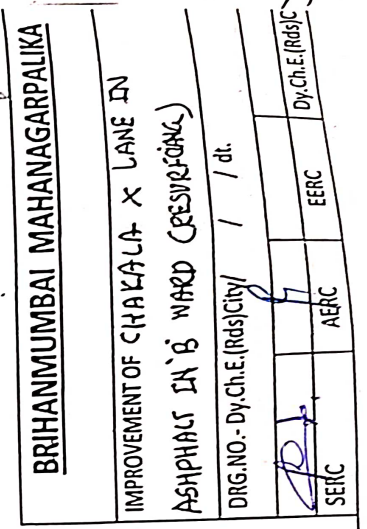 BRIHANMUMBAI MAHANAGARPALIKA
IMPROVEMENT OF CHAKALA X LANE IN
ASHPHALT IN 'B' WARD (RESURFACING)
DRG.NO.- Dy.Ch.E.(Rds)City/ / / dt.
SERC AERC EERC Dy.Ch.E.(Rds)C